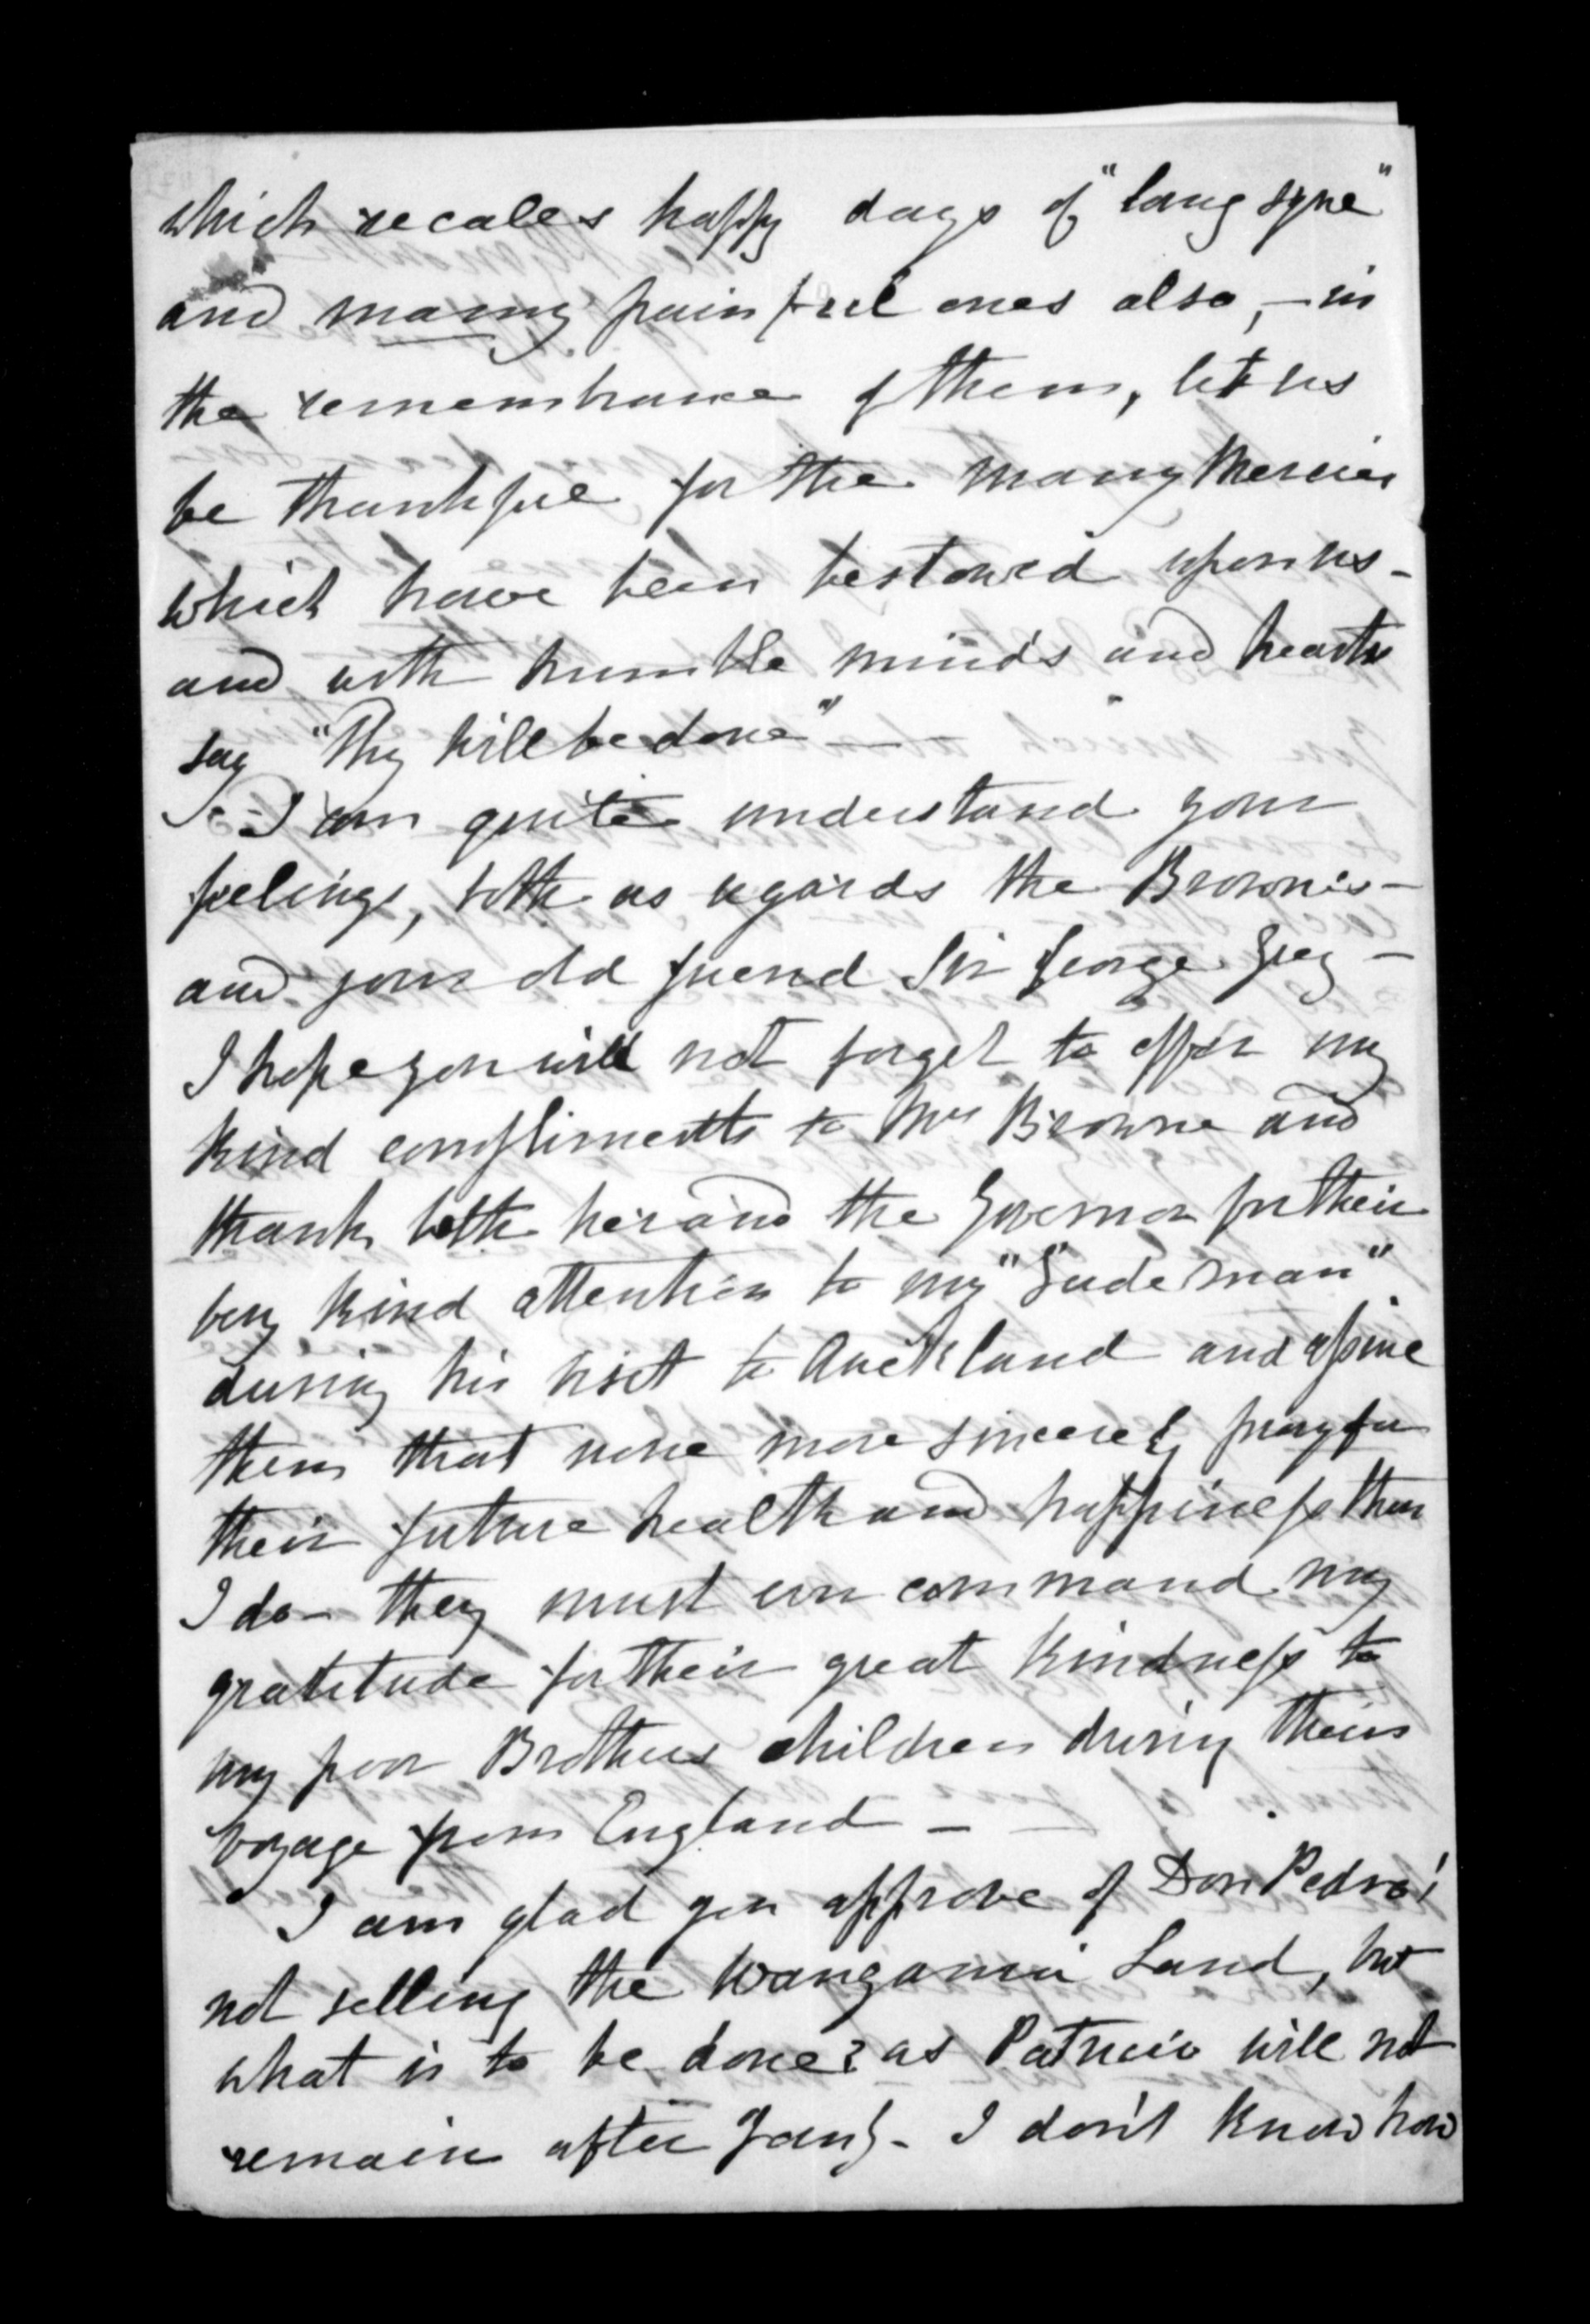 which recales happy days of "lang syne"
and many painful ones also, - in
the remembrance of them, let us
be thankful for the many mercies
which have been bestowed upon us -
and with humble minds and hearts
say "Thy will be done" -
I can quite understand your
feelings, both as regards the Brownes -
and your old friend Sir George Grey -
I hope you will not forget to offer my
kind compliments to Mrs Browne and
thank both her and the Governor for their
very kind attention to my "Gude man"
during his visit to Auckland and assure
them that none more sincerely pray for
their future health and happiness than
I do - they must ever command my
gratitude for their great kindness to
my poor Brothers children during their
voyage from England -
I am glad you approve of Don Pedro's
not selling the Wanganui Land, but
what is to be done? as Patricio will not
remain after Jany. I don't know how